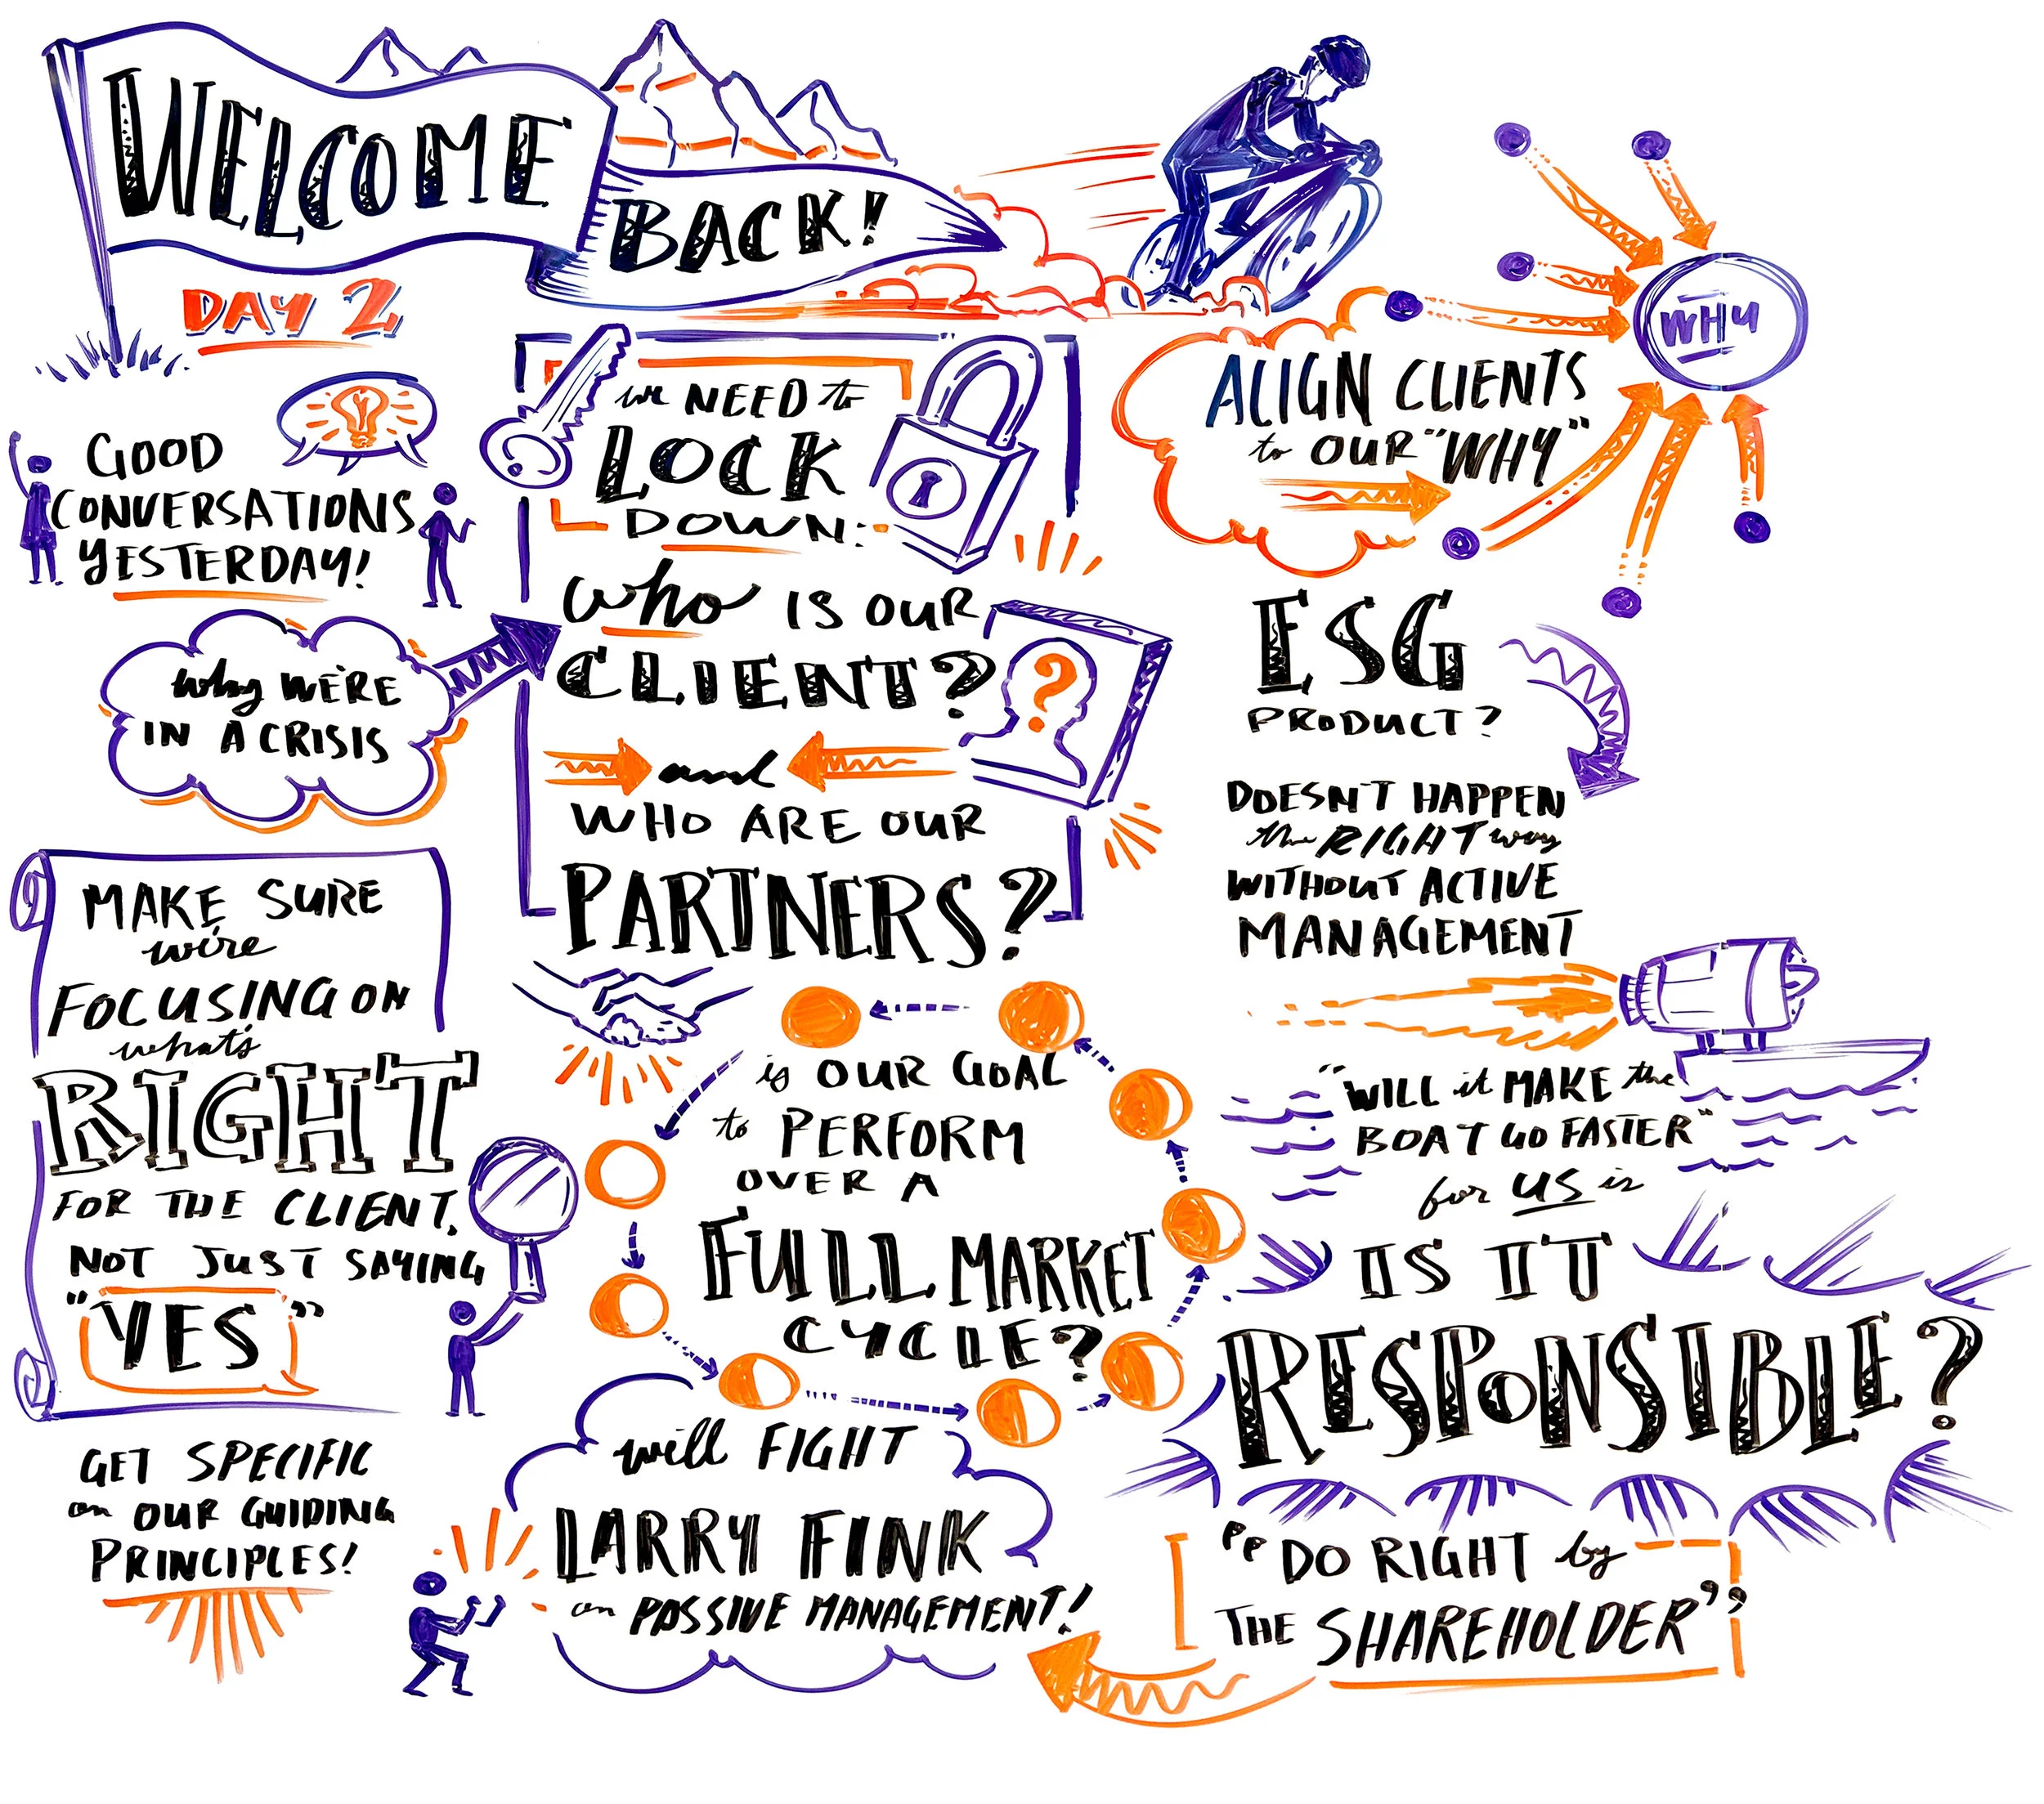 WELCOME
BACK!
DAY 2
GOOD
CONVERSATIONS
YESTERDAY!
why WE'RE
IN A CRISIS
we NEED to
LOCK
DOWN:
who IS OUR
CLIENT?
?
and
WHO ARE OUR
PARTNERS?
MAKE SURE
we're
FOCUSING ON
what's
RIGHT
FOR THE CLIENT,
NOT JUST SAYING
"YES"
GET SPECIFIC
on OUR GUIDING
PRINCIPLES!
is OUR GOAL
to PERFORM
OVER A
FULL MARKET
CYCLE?
will FIGHT
LARRY FINK
on PASSIVE MANAGEMENT!
ALIGN CLIENTS
to OUR "WHY"
WHY
ESG
PRODUCT?
DOESN'T HAPPEN
the RIGHT way
WITHOUT ACTIVE
MANAGEMENT
"WILL it MAKE the
BOAT GO FASTER"
for US is
IS IT
RESPONSIBLE?
"DO RIGHT by
THE SHAREHOLDER"